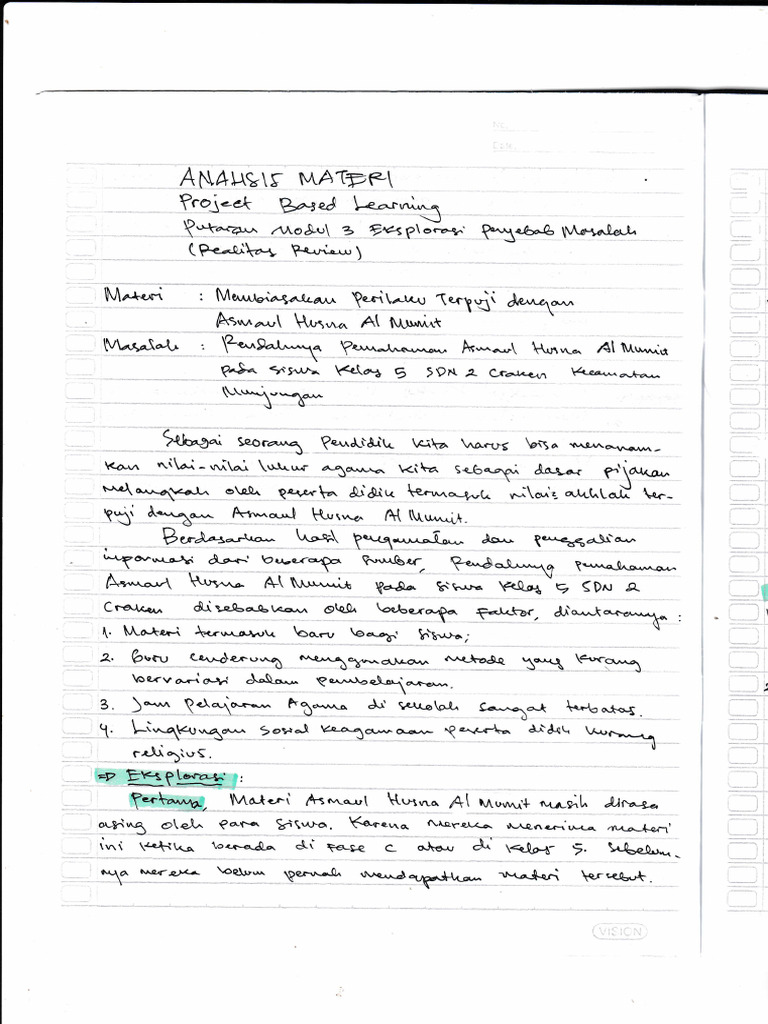 No.
Date.
ANALISIS MATERI
Project Based Learning
Putaran Modul 3 Eksplorasi Penyebab Masalah
(Realitas Review)
Materi : Membiasakan Perilaku Terpuji dengan
Asmaul Husna Al Mumit
Masalah : Rendahnya Pemahaman Asmaul Husna Al Mumit
pada siswa Kelas 5 SDN 2 Craken Kecamatan
Munjungan
Sebagai seorang Pendidik kita harus bisa menanam-
kan nilai-nilai luhur agama kita sebagai dasar pijakan
melangkah oleh peserta didik termasuk nilai2 akhlak ter-
puji dengan Asmaul Husna Al Mumit.
Berdasarkan hasil pengamatan dan penggalian
informasi dari beberapa sumber, Rendahnya pemahaman
Asmaul Husna Al Mumit pada siswa Kelas 5 SDN 2
Craken disebabkan oleh beberapa faktor, diantaranya :
1. Materi termasuk baru bagi siswa;
2. Guru cenderung menggunakan metode yang kurang
bervariasi dalam pembelajaran.
3. Jam Pelajaran Agama di sekolah sangat terbatas.
4. Lingkungan sosial keagamaan peserta didik kurang
religius.
⇒ Eksplorasi :
Pertama, Materi Asmaul Husna Al Mumit masih dirasa
asing oleh para siswa. Karena mereka menerima materi
ini ketika berada di Fase C atau di Kelas 5. Sebelum-
nya mereka belum pernah mendapatkan materi tersebut.
VISION